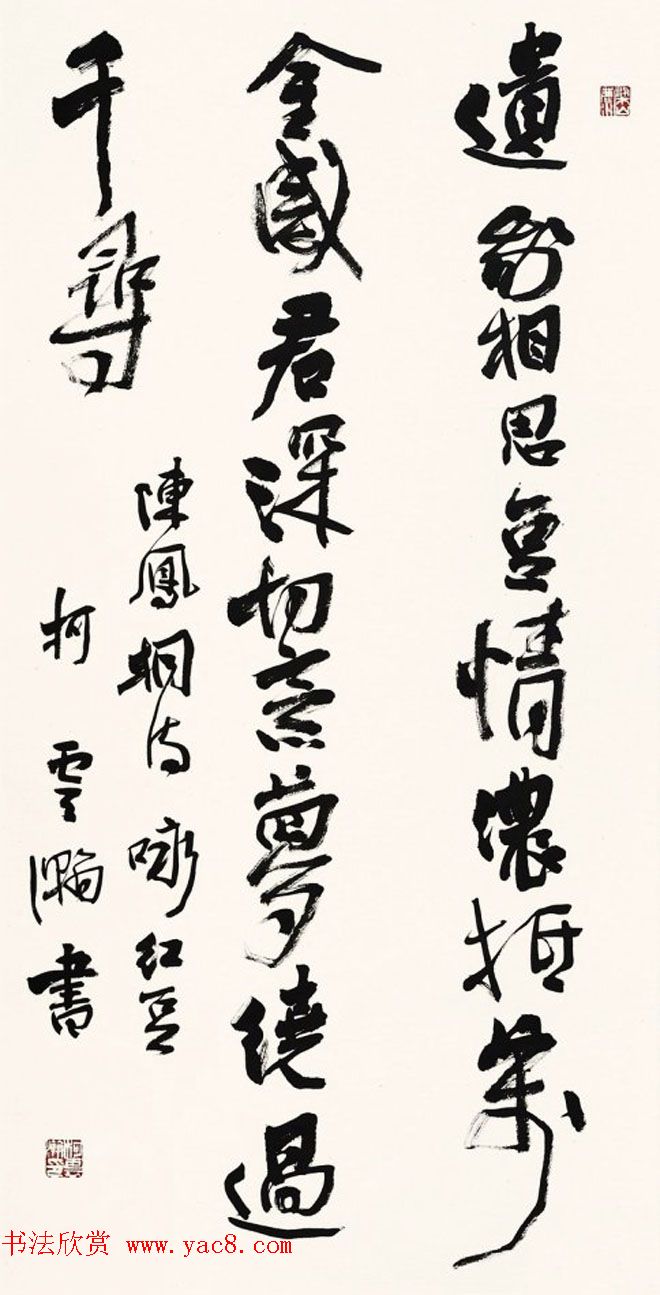 遺我相思豆情濃抵萬
金感君深切意夢繞過
千尋
陳鳳桐詩咏紅豆
柯雲瀚書
书法欣赏 www.yac8.com